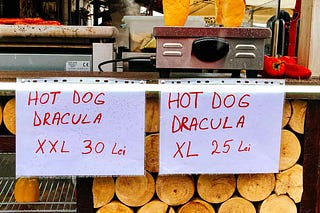 HOT DOG
DRACULA
XXL 30 Lei
HOT DOG
DRACULA
XL 25 Lei